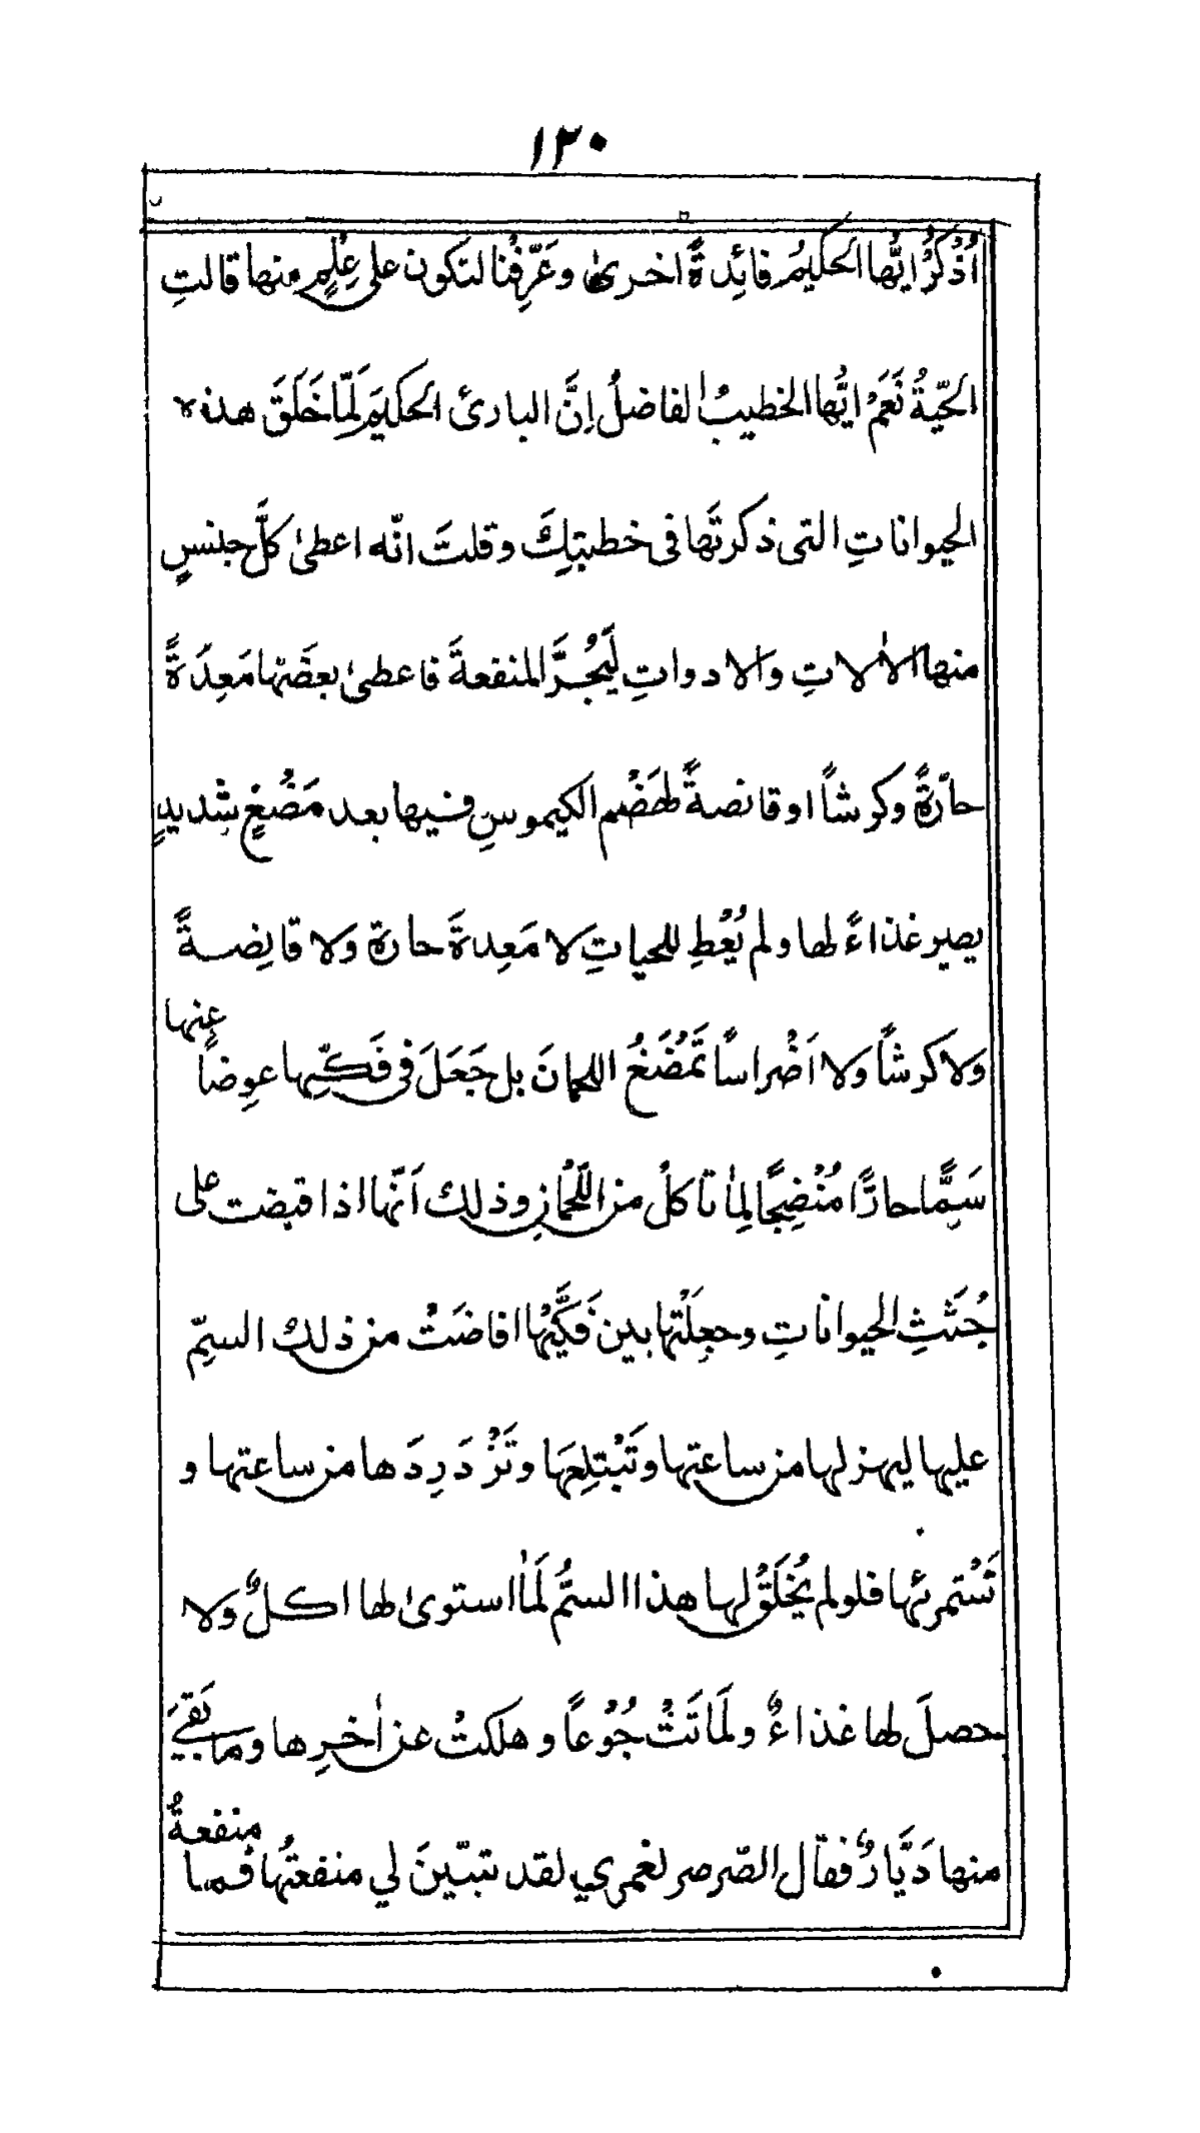 ١٣٠
اُذْكُرْ ايُّها الحَكيمُ فائِدةً اخرىٰ وعَرِّفْنا لنكون على عِلْمٍ منها قالتِ
الحَيّةُ نَعَمْ ايُّها الخطيبُ الفاضلُ اِنَّ البارئ الحكيمَ لِمّا خَلَقَ هذه
الحيواناتِ التى ذكرتَها فى خطبتِكَ وقلتَ انّه اعطىٰ كلَّ جنسٍ
منها الاٰلاتِ والادواتِ لِيَجُرَّ المنفعةَ فاعطىٰ بعضَها مَعِدَةً
حارّةً وكرشاً او قانصةً لهَضْمِ الكيموسِ فيها بعد مَضْغٍ شديدٍ
يصير غذاءً لها ولم يُعْطِ للحياتِ لا مَعِدةَ حارة ولا قانِصةً
ولا كرشاً ولا اَضْراساً تَمْضَغُ اللحمانَ بل جَعَلَ فى فَكَّيها عوِضاً عنها
سَمًّا حارًّا مُنْضِجًا لِمٰا تاكلُ من اللُّحْمانِ وذلك اَنّها اذا قبضت على
جُثَثِ الحيواناتِ وجعلَتْها بين فَكَّيْها افاضَتْ من ذلك السمِّ
عليها ليهزلها من ساعتها وتَبْتلِعَها وتَزْدَرِدَها من ساعتها و
تَسْتمرئها فلو لم يُخْلَقْ لها هذا السمُّ لَمٰا استوىٰ لها اكلٌ ولا
حصلَ لها غذاءٌ ولَمَاتَتْ جُوْعاً وهلكتْ عن اٰخرِها وما بَقِيَ
منها دَيَّارٌ فقال الصّرصر لعمري لقد تبيّنَ لي منفعتُها فما منفعةُ